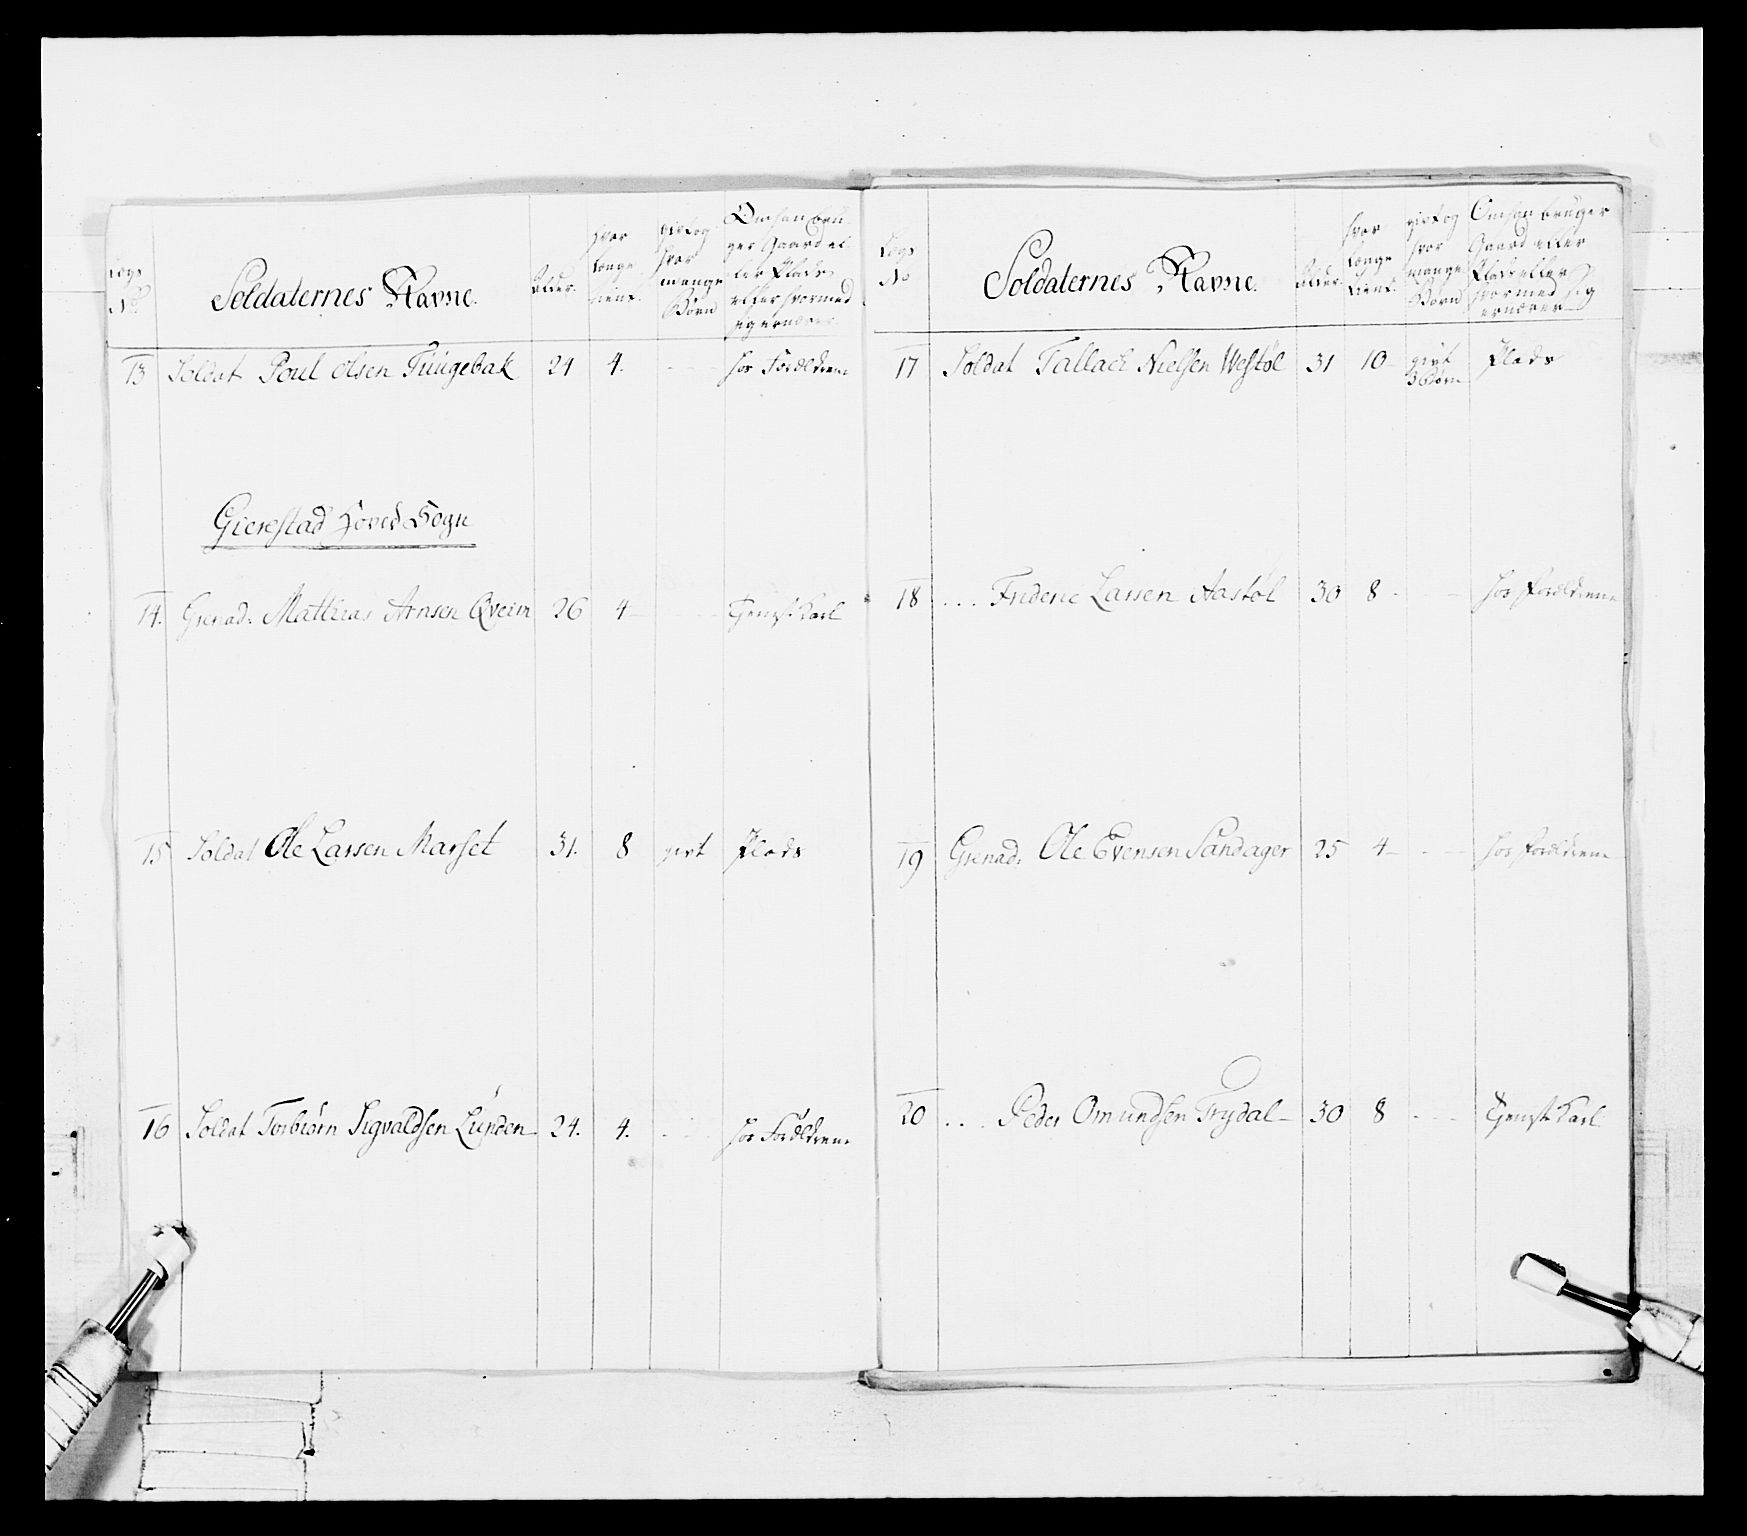 Legs No
Soldaternes Navne.
Alder.
hvor længe tient.
givt og hvor mange Børn
Om han bruger Gaard eller Plads eller hvormed sig ernærer
13 Soldat Poul Olsen Fuugebak 24 4. - - hos Forældrene
Gierestad Hoved Sogn
14. Grenad: Matthias Arnsen Qveim 26 4 - - Tienst Karl
15 Soldat Ole Larsen Marset 31. 8 givt Plads
16 Soldat Torbiørn Sigvaldsen Lunden 24. 4. - - hos Forældrene
Legs No
Soldaternes Navne.
Alder
hvor længe tient.
givt og hvor mange Børn
Om han bruger Gaard eller Plads eller hvormed sig ernærer
17 Soldat Tallach Nielsen Westøl 31 10 givt 3 Børn Plads
18 ... Frideric Larsen Aastøl 30 8 - - hos Forældrene
19 Grenad: Ole Evensen Sandager 25 4 - - hos Forældrene
20 ... Peder Omundsen Trydal 30 8 - - Tienst Karl